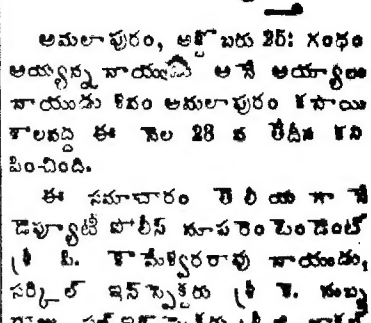 అమలాపురం, అక్టోబరు 31: గంధం
అయ్యన్న నాయుడు అనే అయ్యారు
నాయుడు శవం అమలాపురం కసాయి
కాలవద్ద ఈ నెల 28 వ తేదీన కని
పించింది.
ఈ సమాచారం తెలియగానే
డెప్యూటీ పోలీస్ సూపరెంటెండెంట్
శ్రీ పి. కామేశ్వరరావు నాయుడు,
సర్కిల్ ఇన్స్పెక్టరు శ్రీ కె. సుబ్బ